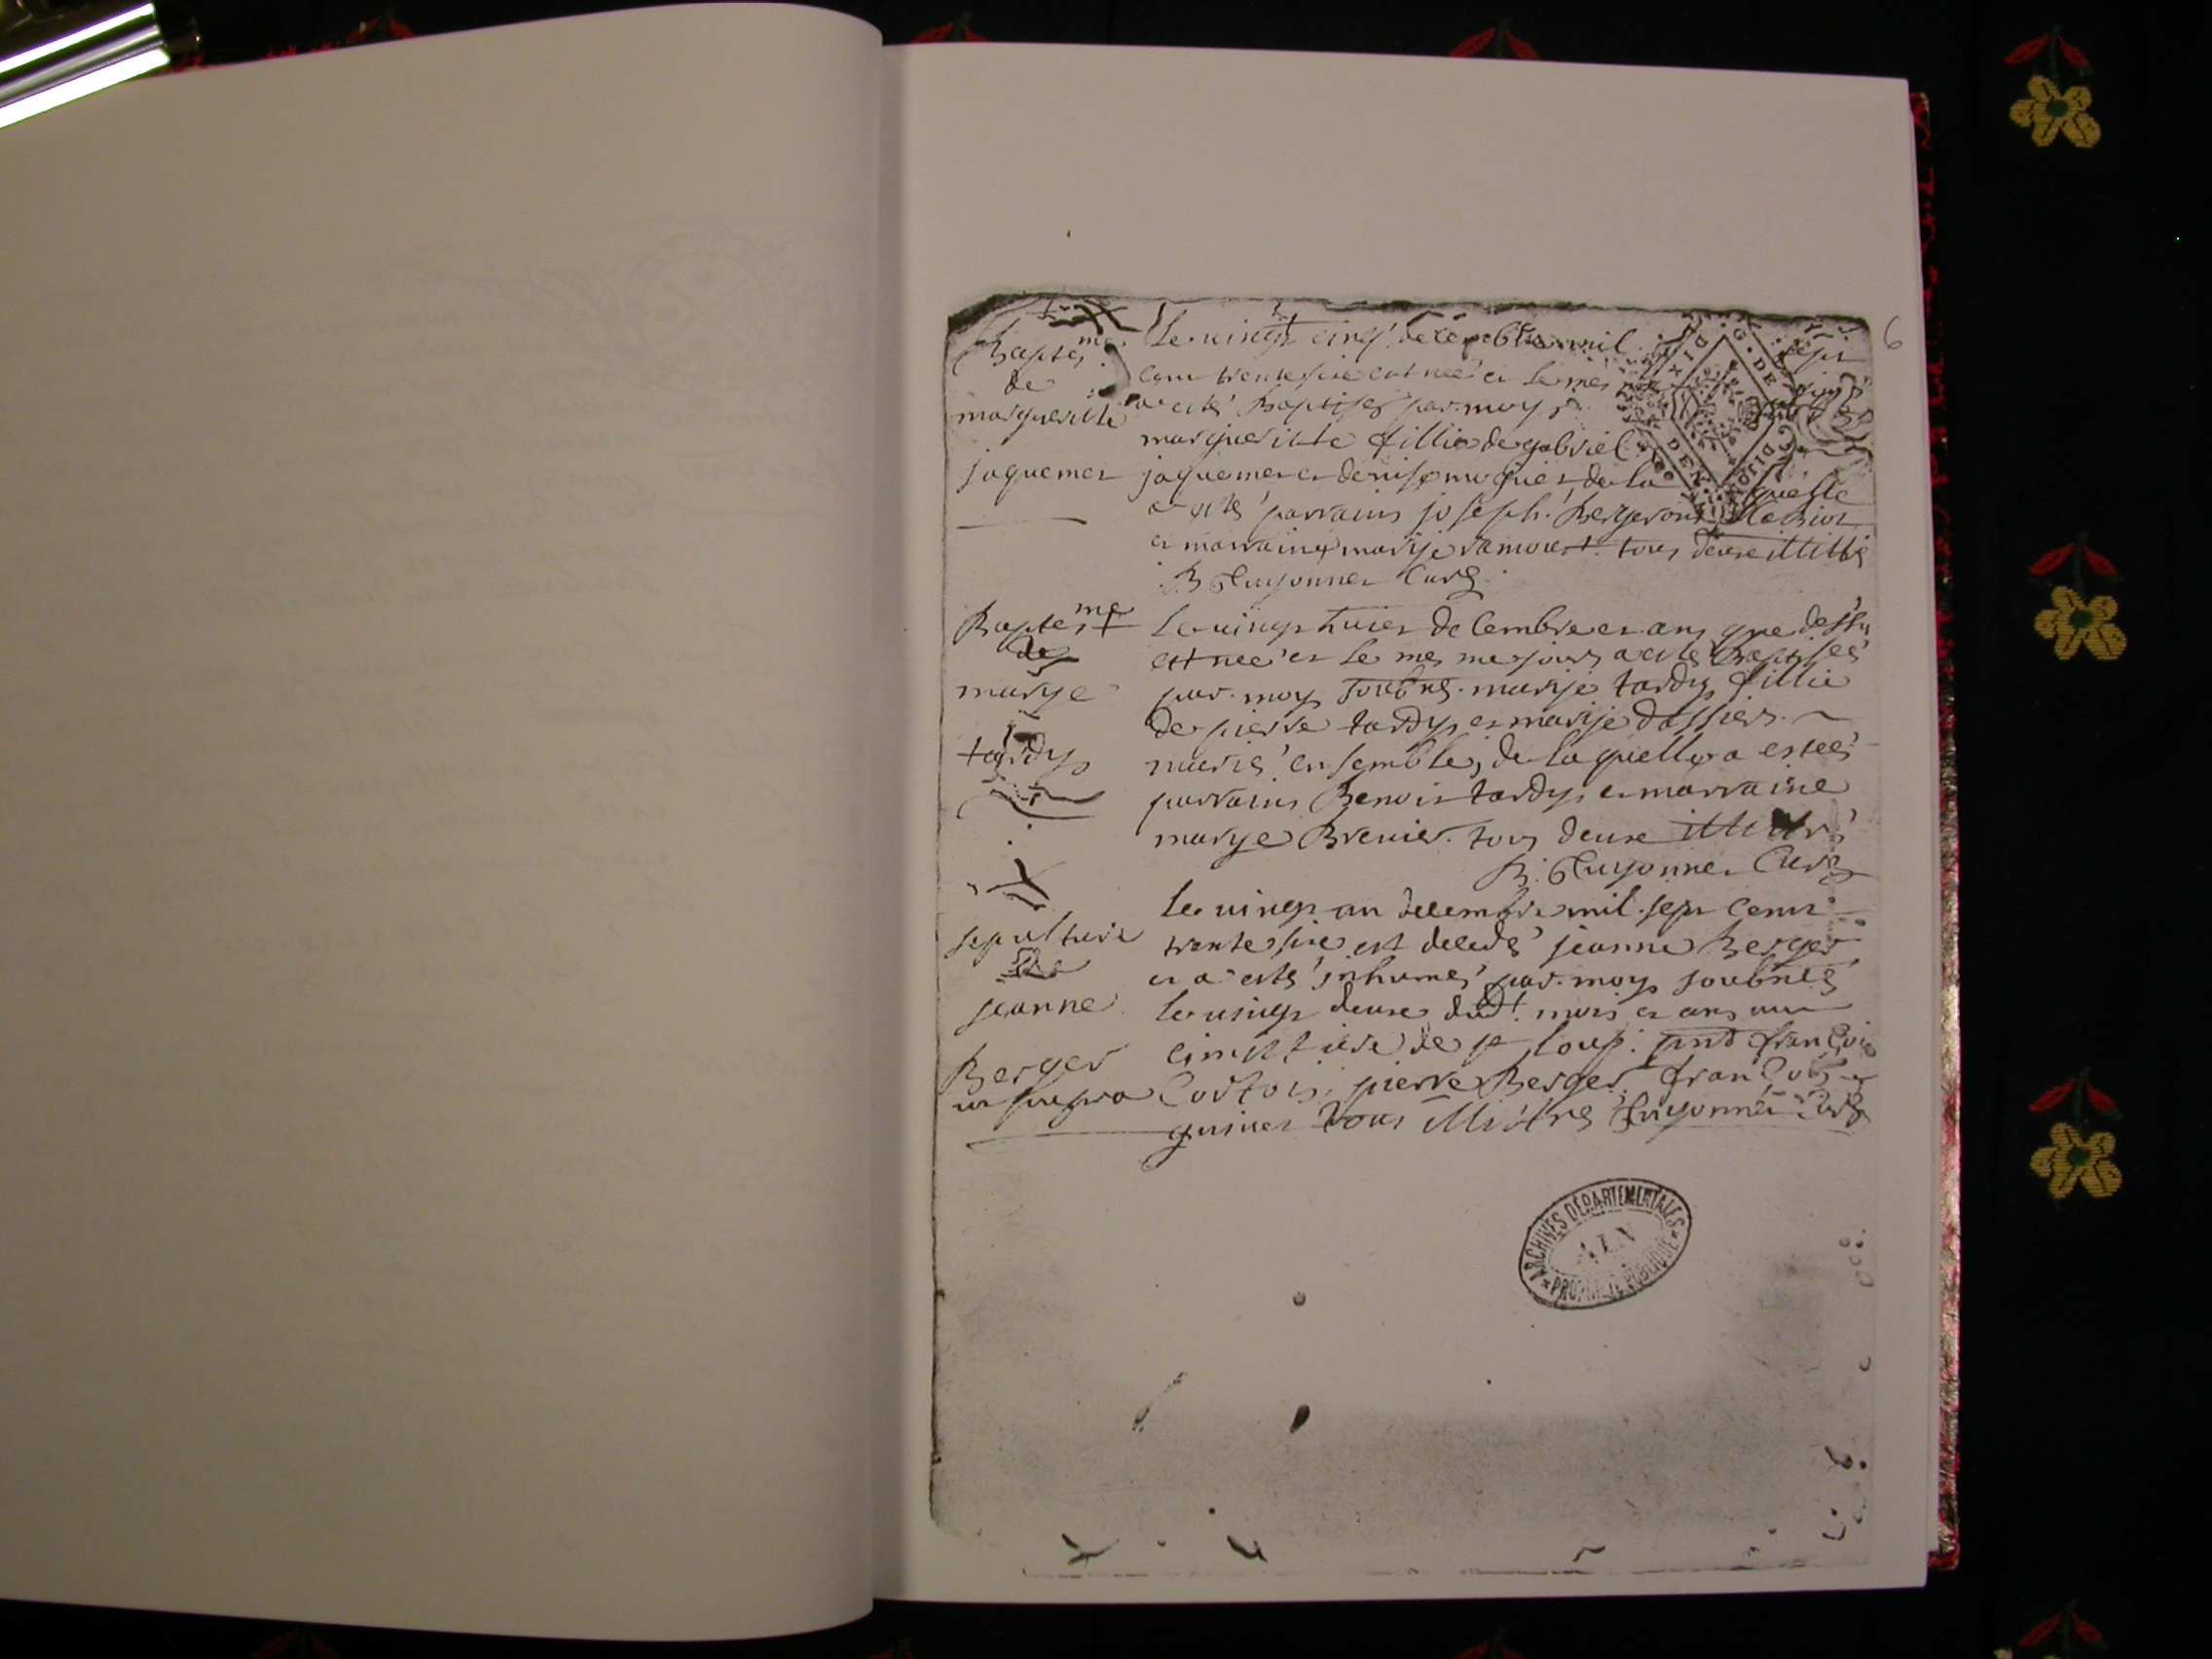 6
Baptesme
de
margueritte
jaquemet
Le vingt cinq decembre mil sept
cent trente sixe est neé et le mes
a esté Baptisés par moy
margueritte fillie de gabriel
jaquemet et denise moguiet, de la quelle
a esté parrains joseph Bergeront
et marraine marije ramouet tous deuxe illitrés
B Guyonnet Curé
Baptesme
de
marye
tardy
Le vingt huict decembre et ans que dessu
est neé et le mes me jours a esté Baptiseé
par moy soubné marije tardy fillie
de pierre tardy et marije dassier
mariés ensemble, de laquelle a esteé
parrains Benoit tardy et marraine
marye Brevier tous deuxe illitrés
B. Guyonnet Curé
sepulture
de
jeanne
Berger
ut supra
le vingt un decembre mil sept cent
trente sixe est decedé jeanne Berger
et a esté inhumé par moy soubnés
le vingt deuxe dudt mois et ans au
cimetiere de st loup. pnt francois
Cortois, pierre Berger, francois
guinet tous illitrés Guyonnet Curé
G. DE DIJON
ARCHIVES DÉPARTEMENTALES
AIN
PROPRIÉTÉ PUBLIQUE